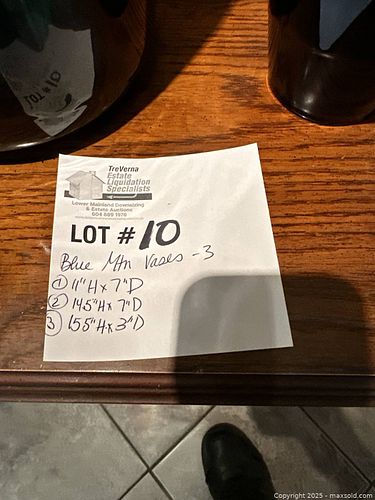 LOT #10
TreVerna
Estate
Liquidation
Specialists
Lower Mainland Downsizing
& Estate Auctions
604 889 1976
LOT # 10
Blue Mtn Vases - 3
① 11"H x 7"D
② 14.5"H x 7"D
③ 15.5"H x 3"D
Copyright 2025 - maxsold.com